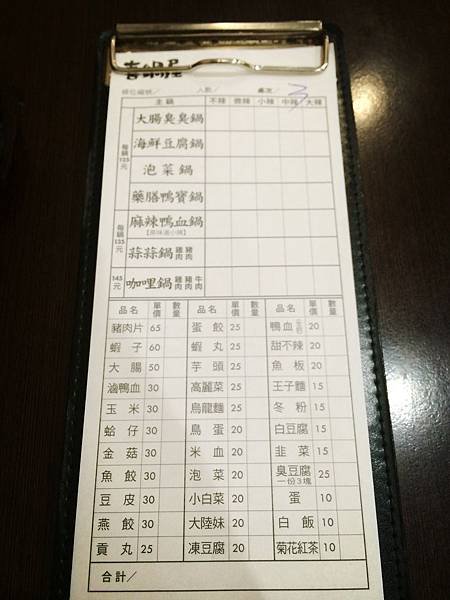 喜鍋屋
檯位編號／ 人數／ 桌次／ 3
主鍋 不辣 微辣 小辣 中辣 大辣
每鍋125元
大腸臭臭鍋
海鮮豆腐鍋
泡菜鍋
藥膳鴨寶鍋
每鍋135元
麻辣鴨血鍋
蒜蒜鍋 雞肉 豬肉
145元
咖哩鍋 雞肉 豬肉 牛肉
品名 單價 數量 品名 單價 數量 品名 單價 數量
豬肉片 65 蛋餃 25 鴨血 20
蝦子 60 蝦丸 25 甜不辣 20
大腸 50 芋頭 25 魚板 20
滷鴨血 30 高麗菜 25 王子麵 15
玉米 30 烏龍麵 25 冬粉 15
蛤仔 30 鳥蛋 20 白豆腐 15
金菇 30 米血 20 韭菜 15
魚餃 30 泡菜 20 臭豆腐 一份3塊 25
豆皮 30 小白菜 20 蛋 10
燕餃 30 大陸妹 20 白飯 10
貢丸 25 凍豆腐 20 菊花紅茶 10
合計／